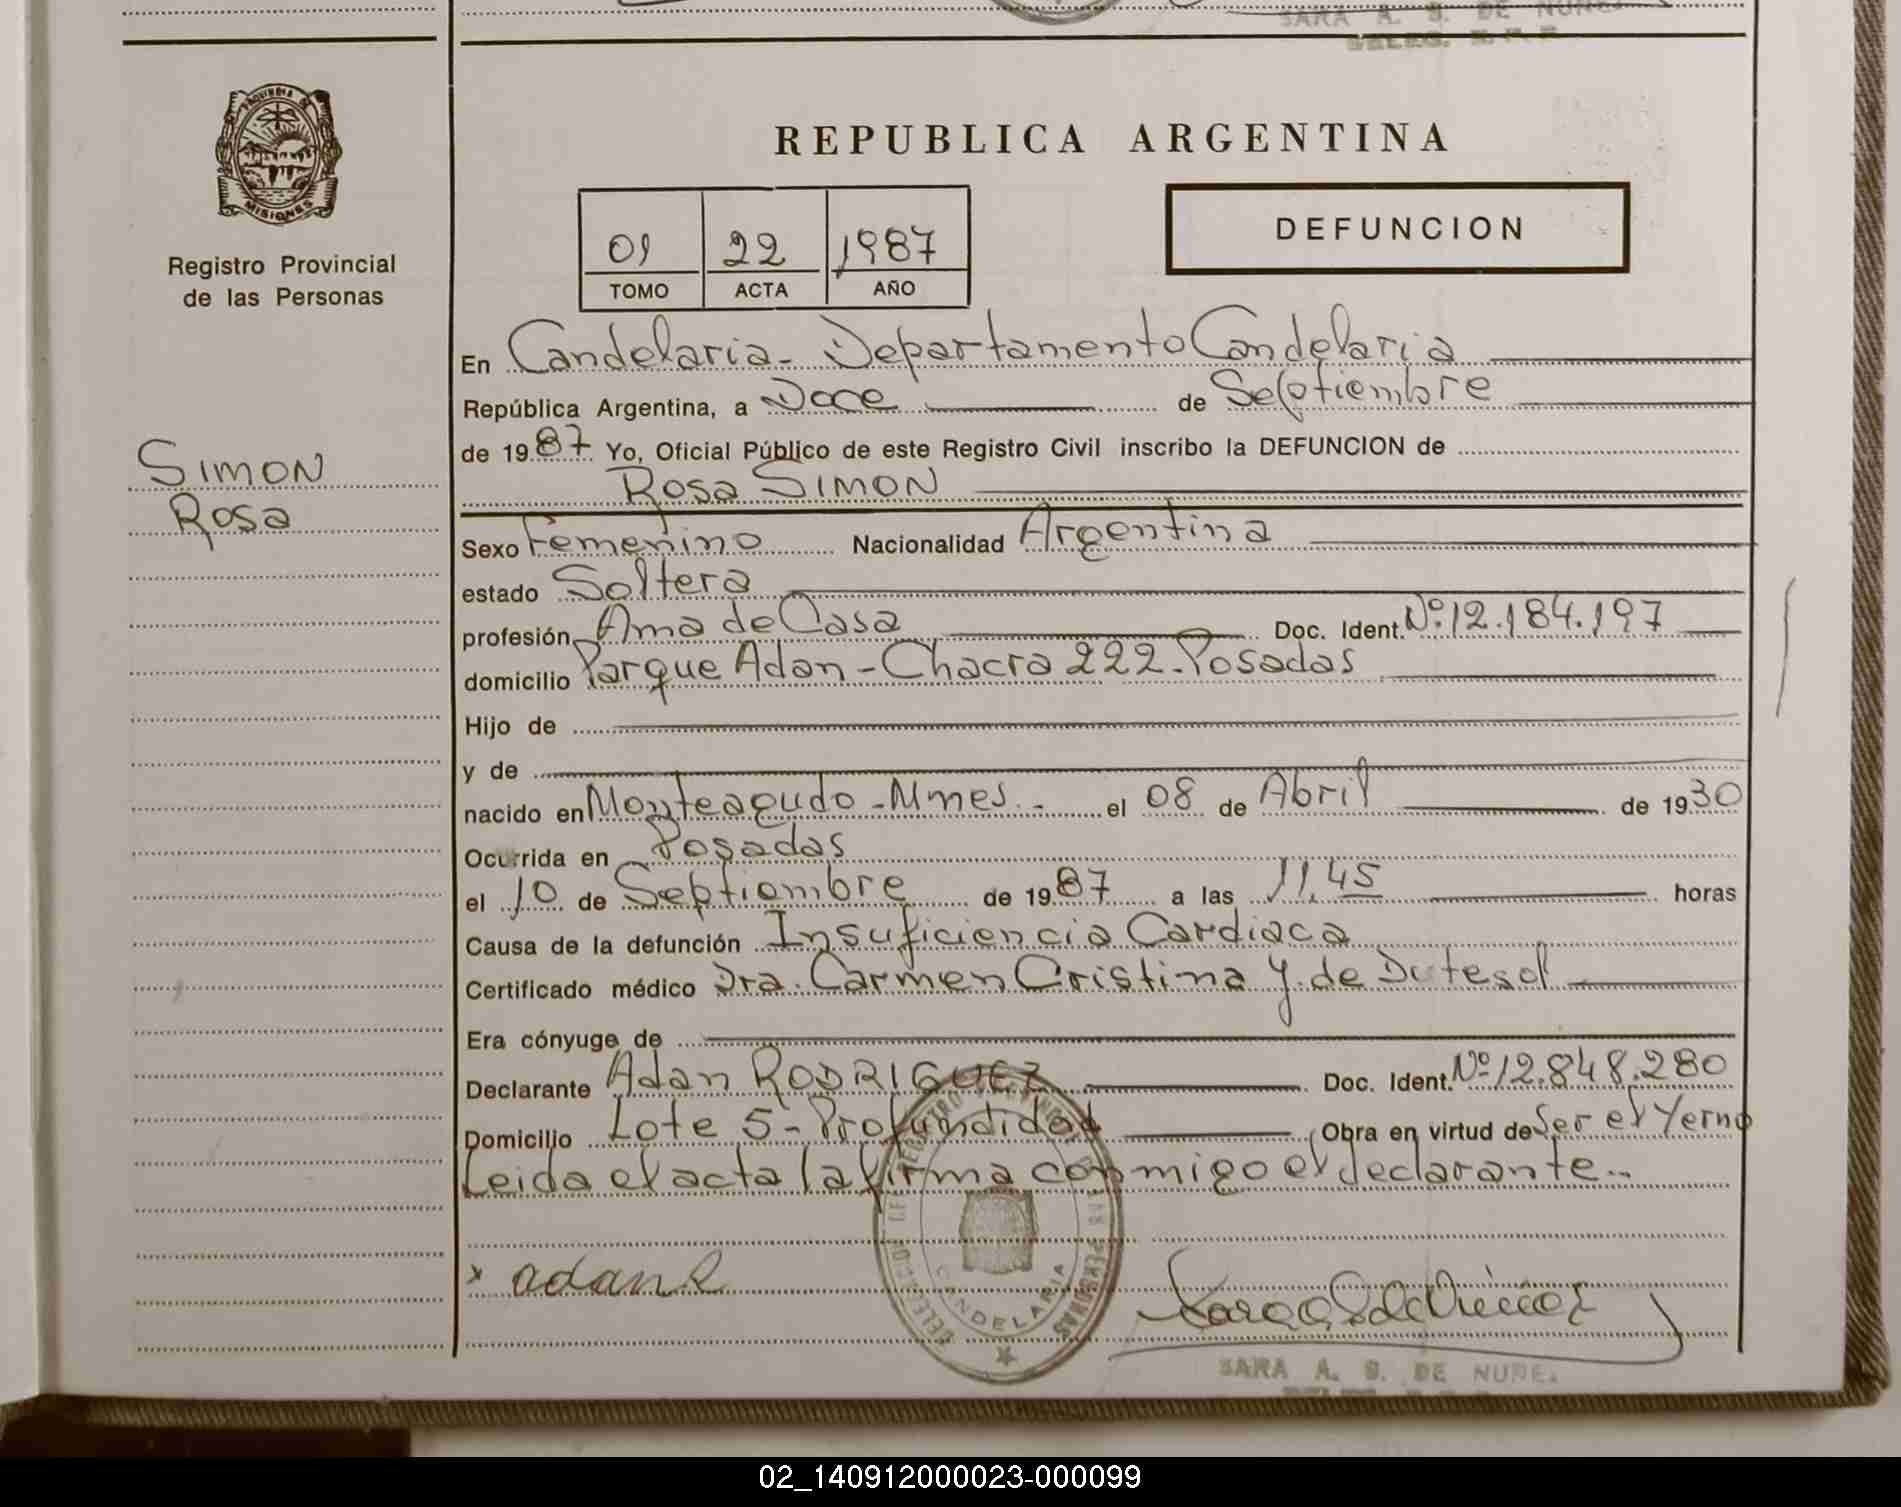 SARA A. S. DE NUÑE
DELEG. R.P.P.
PROVINCIA DE
MISIONES
Registro Provincial
de las Personas
REPUBLICA ARGENTINA
01 22 1987
TOMO ACTA AÑO
DEFUNCION
En Candelaria - Departamento Candelaria
República Argentina, a Doce de Septiembre
de 1987 Yo, Oficial Público de este Registro Civil inscribo la DEFUNCION de
Rosa SIMON
SIMON
Rosa
Sexo Femenino Nacionalidad Argentina
estado Soltera
profesión Ama de Casa Doc. Ident. Nº 12.184.197
domicilio Parque Adan - Chacra 222 - Posadas
Hijo de
y de
nacido en Monteagudo - Mnes. - el 08 de Abril de 1930
Ocurrida en Posadas
el 10 de Septiembre de 1987 a las 11,45 horas
Causa de la defunción Insuficiencia Cardiaca
Certificado médico Dra. Carmen Cristina Y. de Dutesol
Era cónyuge de
Declarante Adan RODRIGUEZ Doc. Ident. Nº 12.848.280
Domicilio Lote 5 - Profundidad Obra en virtud de Ser el Yerno
Leida el acta la firma conmigo el declarante..
x adan R
CANDELARIA
SARA A. S. DE NUÑE.
02_140912000023-000099